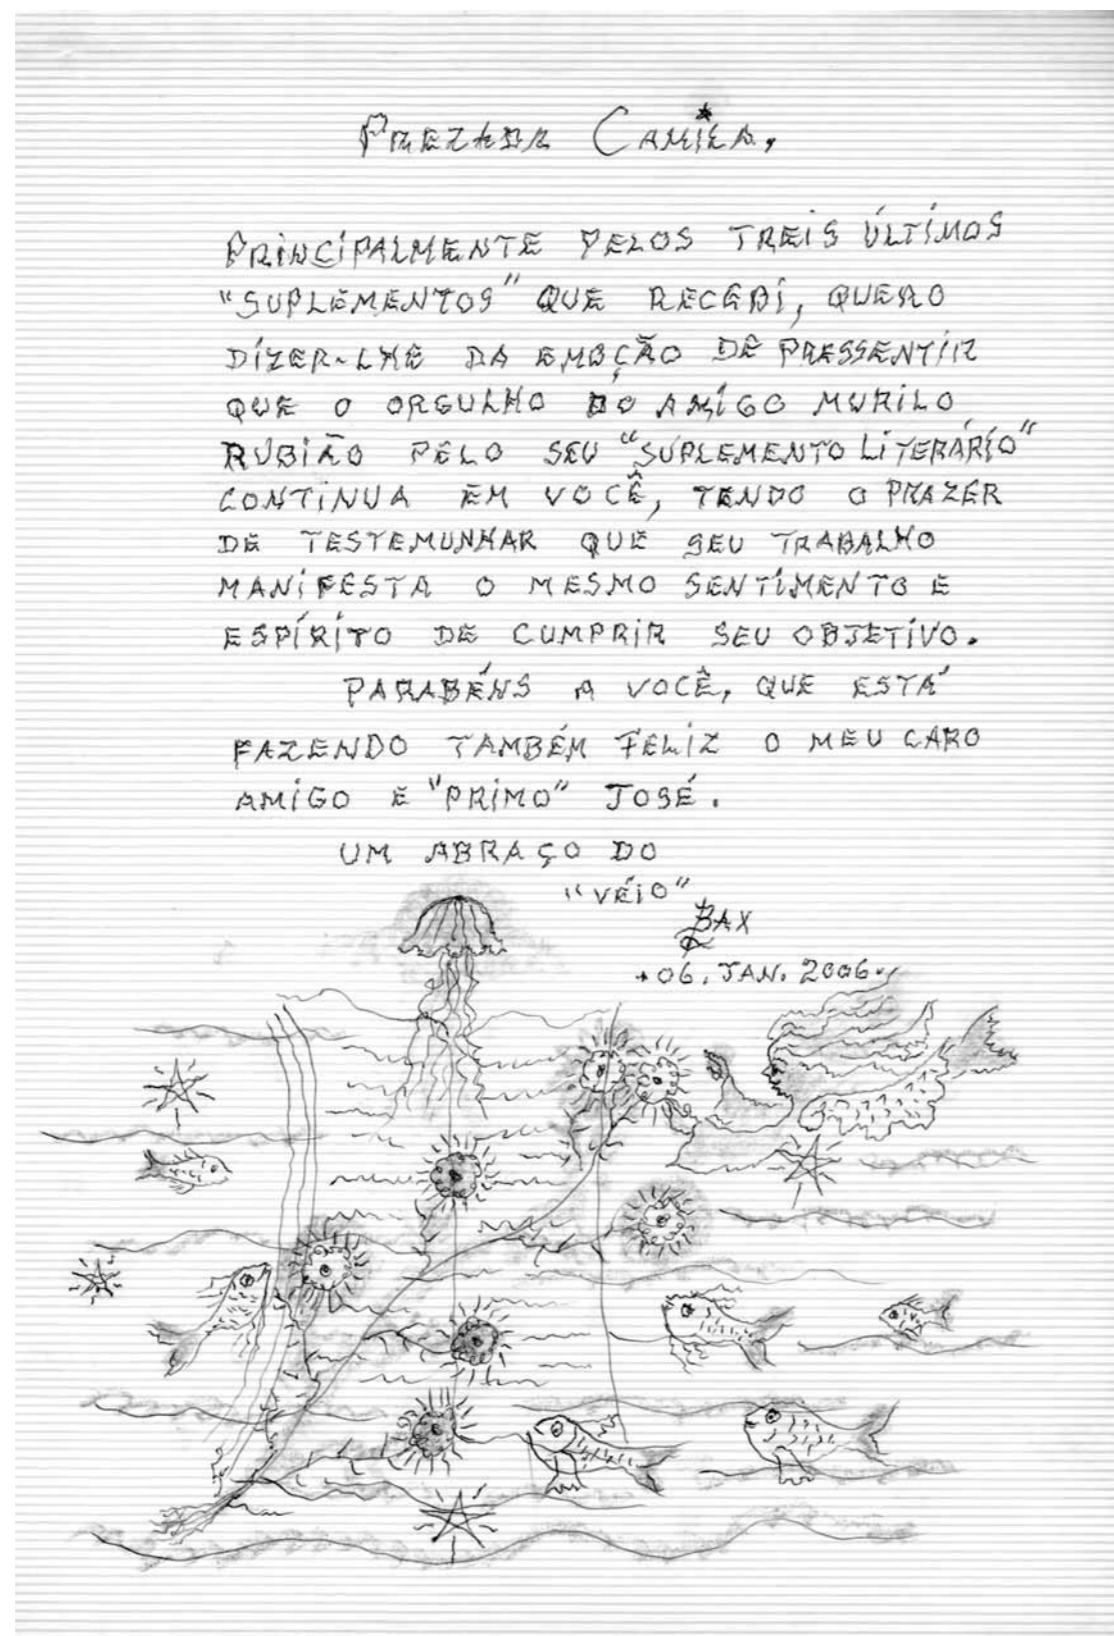 PREZADA CAMILA,
PRINCIPALMENTE PELOS TREIS ÚLTIMOS
"SUPLEMENTOS" QUE RECEBI, QUERO
DIZER-LHE DA EMOÇÃO DE PRESSENTIR
QUE O ORGULHO DO AMIGO MURILO
RUBIÃO PELO SEU "SUPLEMENTO LITERÁRIO"
CONTINUA EM VOCÊ, TENDO O PRAZER
DE TESTEMUNHAR QUE SEU TRABALHO
MANIFESTA O MESMO SENTIMENTO E
ESPÍRITO DE CUMPRIR SEU OBJETIVO.
PARABÉNS A VOCÊ, QUE ESTÁ
FAZENDO TAMBÉM FELIZ O MEU CARO
AMIGO E "PRIMO" JOSÉ.
UM ABRAÇO DO
"VÉIO"
BAX
06. JAN. 2006.